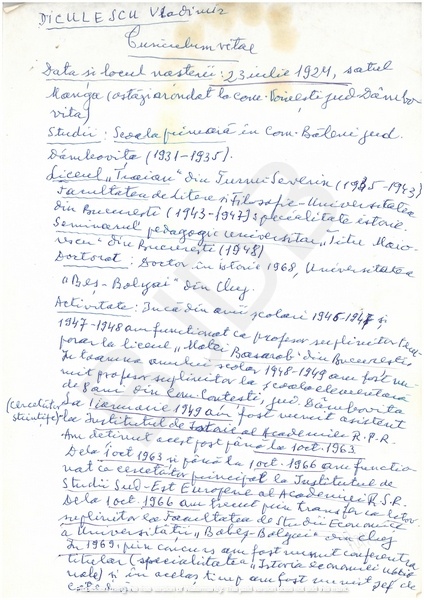 DICULESCU Vladimir
Curiculum vitae
Data și locul nașterii: 23 iulie 1924, satul
Manga (astăzi arondat la com. Voinești jud. Dâmbo
vita)
Studii: Școala primară în com. Băleni jud.
Dâmbovița (1931-1935).
Liceul "Traian" din Turnu-Severin (1935-1943)
Facultatea de Litere și Filosofie - Universitatea
din București (1943-1947) specialitate istorie
Seminarul pedagogic universitar "Titu Maio-
rescu" din București (1948)
Doctorat: Doctor în istorie 1968, Universitatea
"Beș-Bolyai" din Cluj.
Activitate: Încă din anii școlari 1946-1947 și
1947-1948 am funcționat ca profesor suplinitor tem-
porar la liceul "Matei Basarab" din București.
În toamna anului școlar 1948-1949 am fost nu-
mit profesor suplinitor la școala elementară
de 8 ani din com. Contești, jud. Dâmbovița
La 1 ianuarie 1949 am fost numit asistent
(cercetător
științific) la Institutul de Istorie al Academiei R.P.R.
Am deținut acest post până la 1 oct. 1963
De la 1 oct 1963 și până la 1 oct. 1966 am funcțio
nat ca cercetător principal la Institutul de
Studii Sud-Est Europene al Academiei R.S.R.
De la 1 oct. 1966 am trecut prin transfer ca lector
suplinitor la Facultatea de Studii Economice
a Universității "Babeș-Bolyai" din Cluj
În 1969, prin concurs am fost numit conferențiar
titular (specialitatea "Istoria economiei națio
nale) și în același timp am fost numit șef de